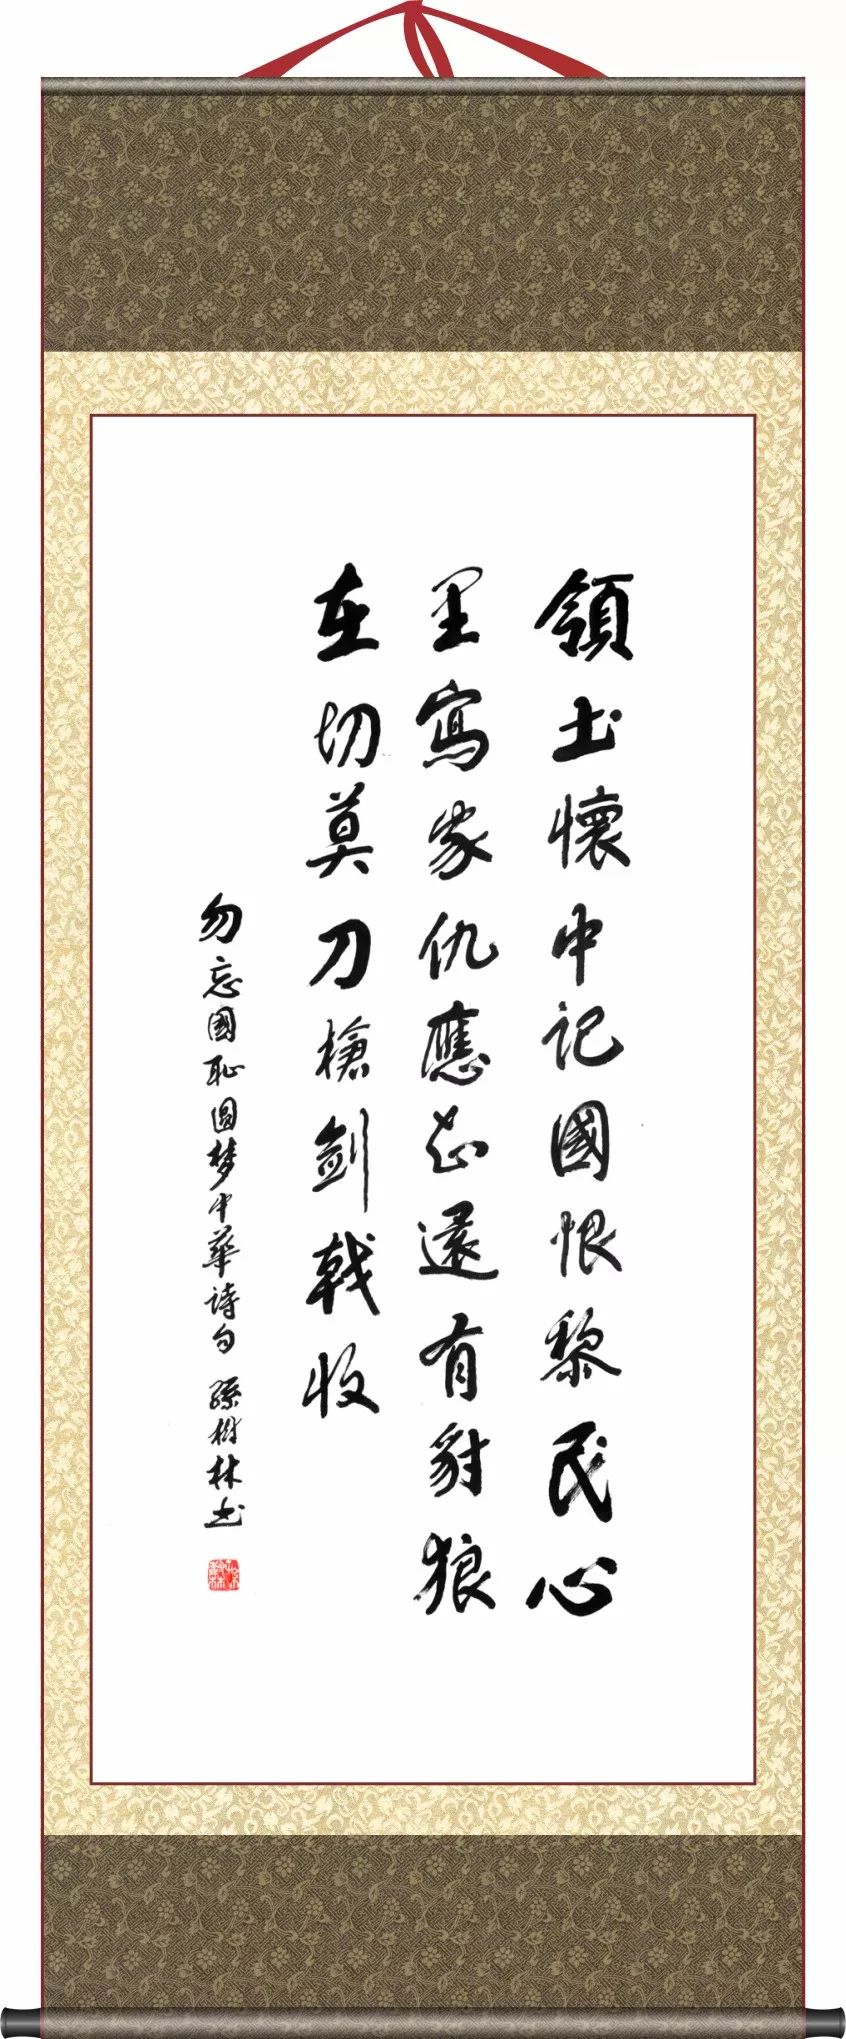 領土懷中記國恨黎民心
里寫家仇應知還有豺狼
在切莫刀槍劍戟收
勿忘國恥圓梦中華诗句 孫樹林书